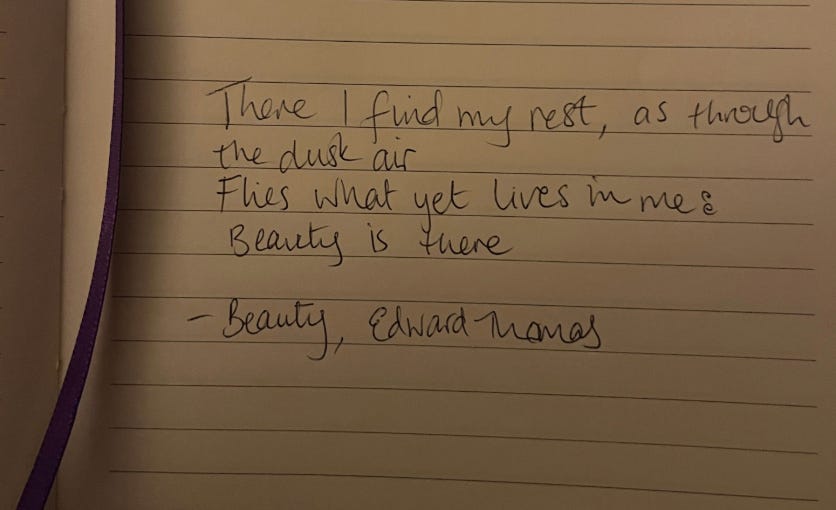 There I find my rest, as through
the dusk air
Flies what yet lives in me:
Beauty is there
- Beauty, Edward Thomas